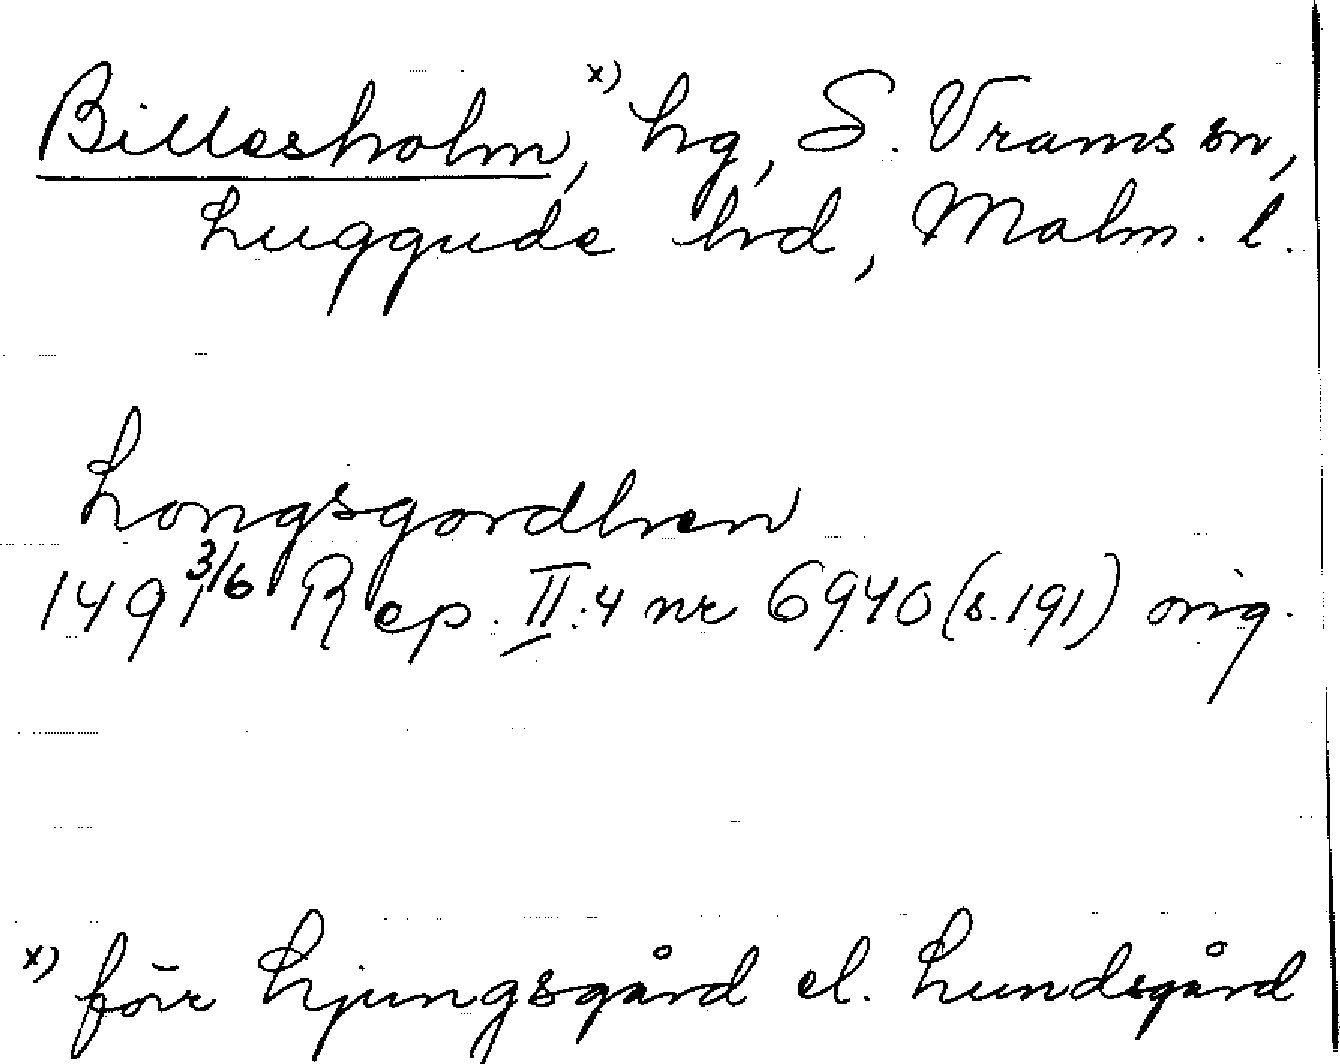 Billesholm,ˣ⁾ hg, S. Vrams sn,
Luggude hd, Malm. l.
Longsgordhen
1491 3/6 Rep. II:4 nr 6940 (s. 191) orig.
x) förr Ljungsgård el. Lundsgård